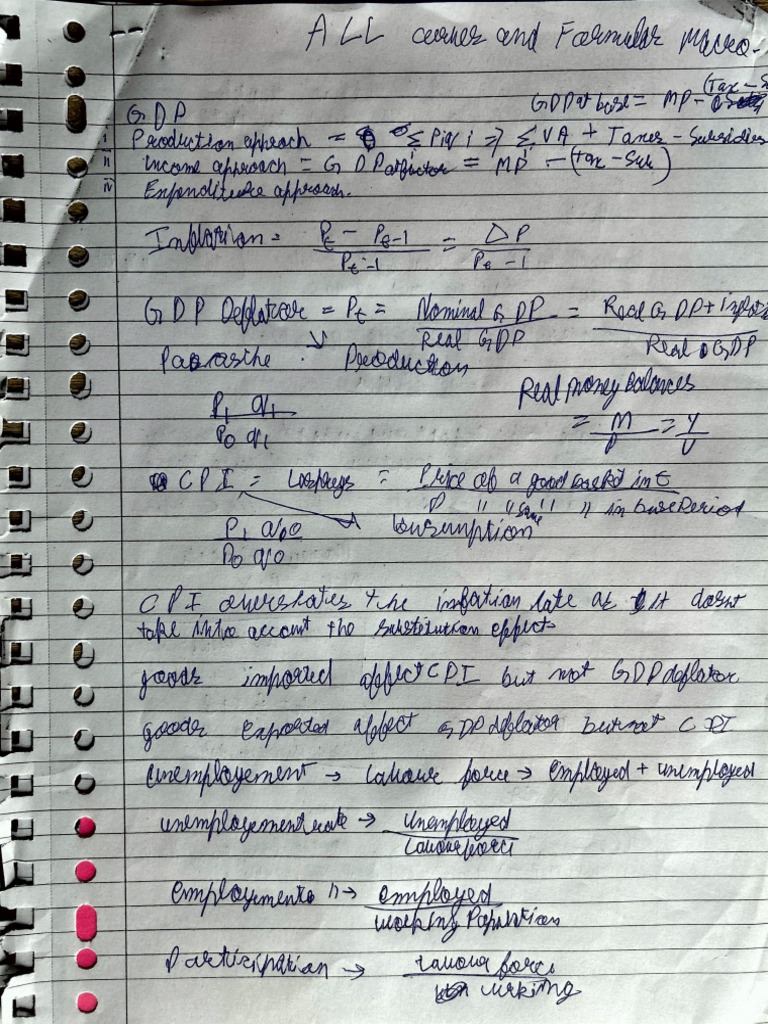 ALL curves and Formular Macro.
(Tax - S
GDP at base = MP -
GDP
i Production approach = Σ Pi qi => Σ VA + Taxes - Subsidies
ii income approach = GDP at factor = MP - (tax - Sub)
iv Expenditure approach.
Inflation = Pt - Pt-1 / Pt-1 = ΔP / Pt-1
GDP Deflator = Pt = Nominal GDP / Real GDP = Real GDP + inflati / Real GDP
Paarashe Production
P1 q1 / P0 q1
Real money balances
= M / P = Y / V
CPI = Laspays = Price of a good basket in t / P " " same " " in base Period
P1 q0 / P0 q0 Consumption
CPI overstates the inflation rate as it doesnt
take into account the substitution effects
goods imported affect CPI but not GDP deflator
goods Exported affect GDP deflator but not CPI
Unemployement → Labour force → Employed + unemployed
unemployement rate → Unemployed / Labour force
Employemento " → employed / working Population
Participation → Labour force / working